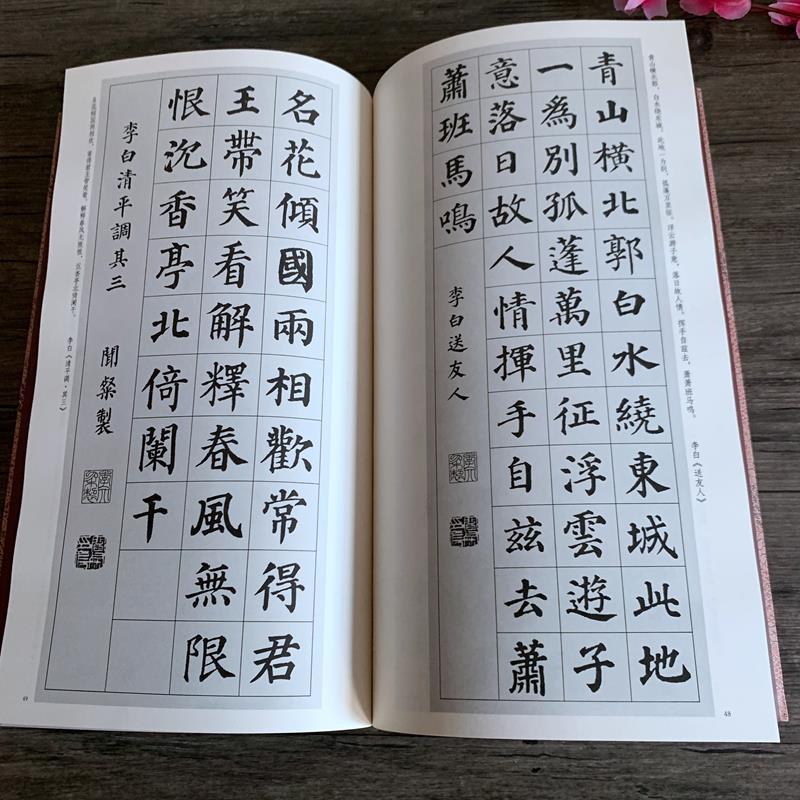 青山横北郭，白水绕东城。此地一为别，孤蓬万里征。浮云游子意，落日故人情。挥手自兹去，萧萧班马鸣。
李白《送友人》
青山橫北郭白水繞東城此地
一爲別孤蓬萬里征浮雲遊子
意落日故人情揮手自兹去蕭
蕭班馬鳴
李白送友人
48
名花傾國兩相歡常得君
王帶笑看解釋春風無限
恨沉香亭北倚闌干
李白清平調其三 聞粲製
名花倾国两相欢，常得君王带笑看。解释春风无限恨，沉香亭北倚阑干。
李白《清平调·其三》
49